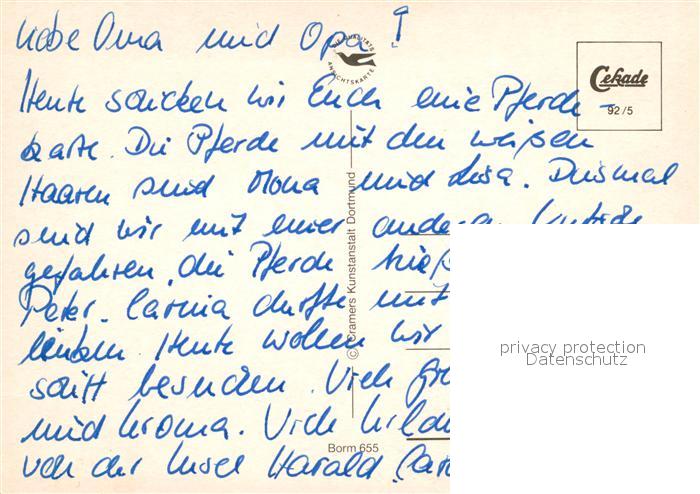 Liebe Oma und Opa!
Heute schicken wir Euch eine Pferde-
karte. Die Pferde mit den weißen
Haaren sind Mona und Lisa. Diesmal
sind wir mit einer anderen Kutsche
gefahren, die Pferde
Peter. Carina durfte mit
lenken. Heute wollen wir
schiff besuchen. Viele
und Uroma. Viele
von der Insel Harald
DIE QUALITÄTS ANSICHTSKARTE
Cekade
92/5
© Cramers Kunstanstalt Dortmund
Borm 655
privacy protection
Datenschutz